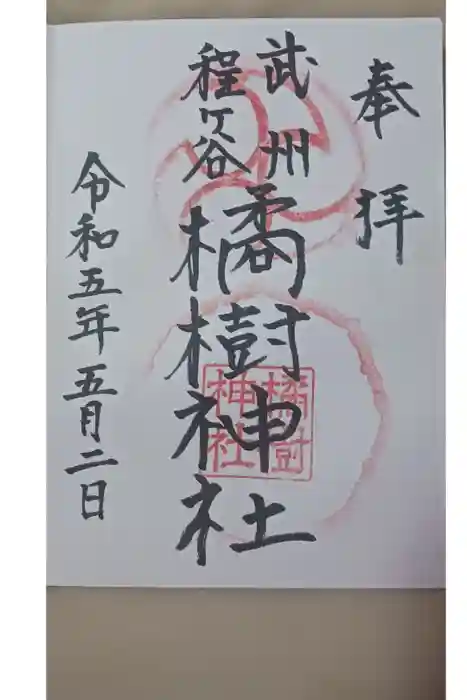 奉拝
武州
程ヶ谷
橘樹神社
橘樹
神社
令和五年五月二日